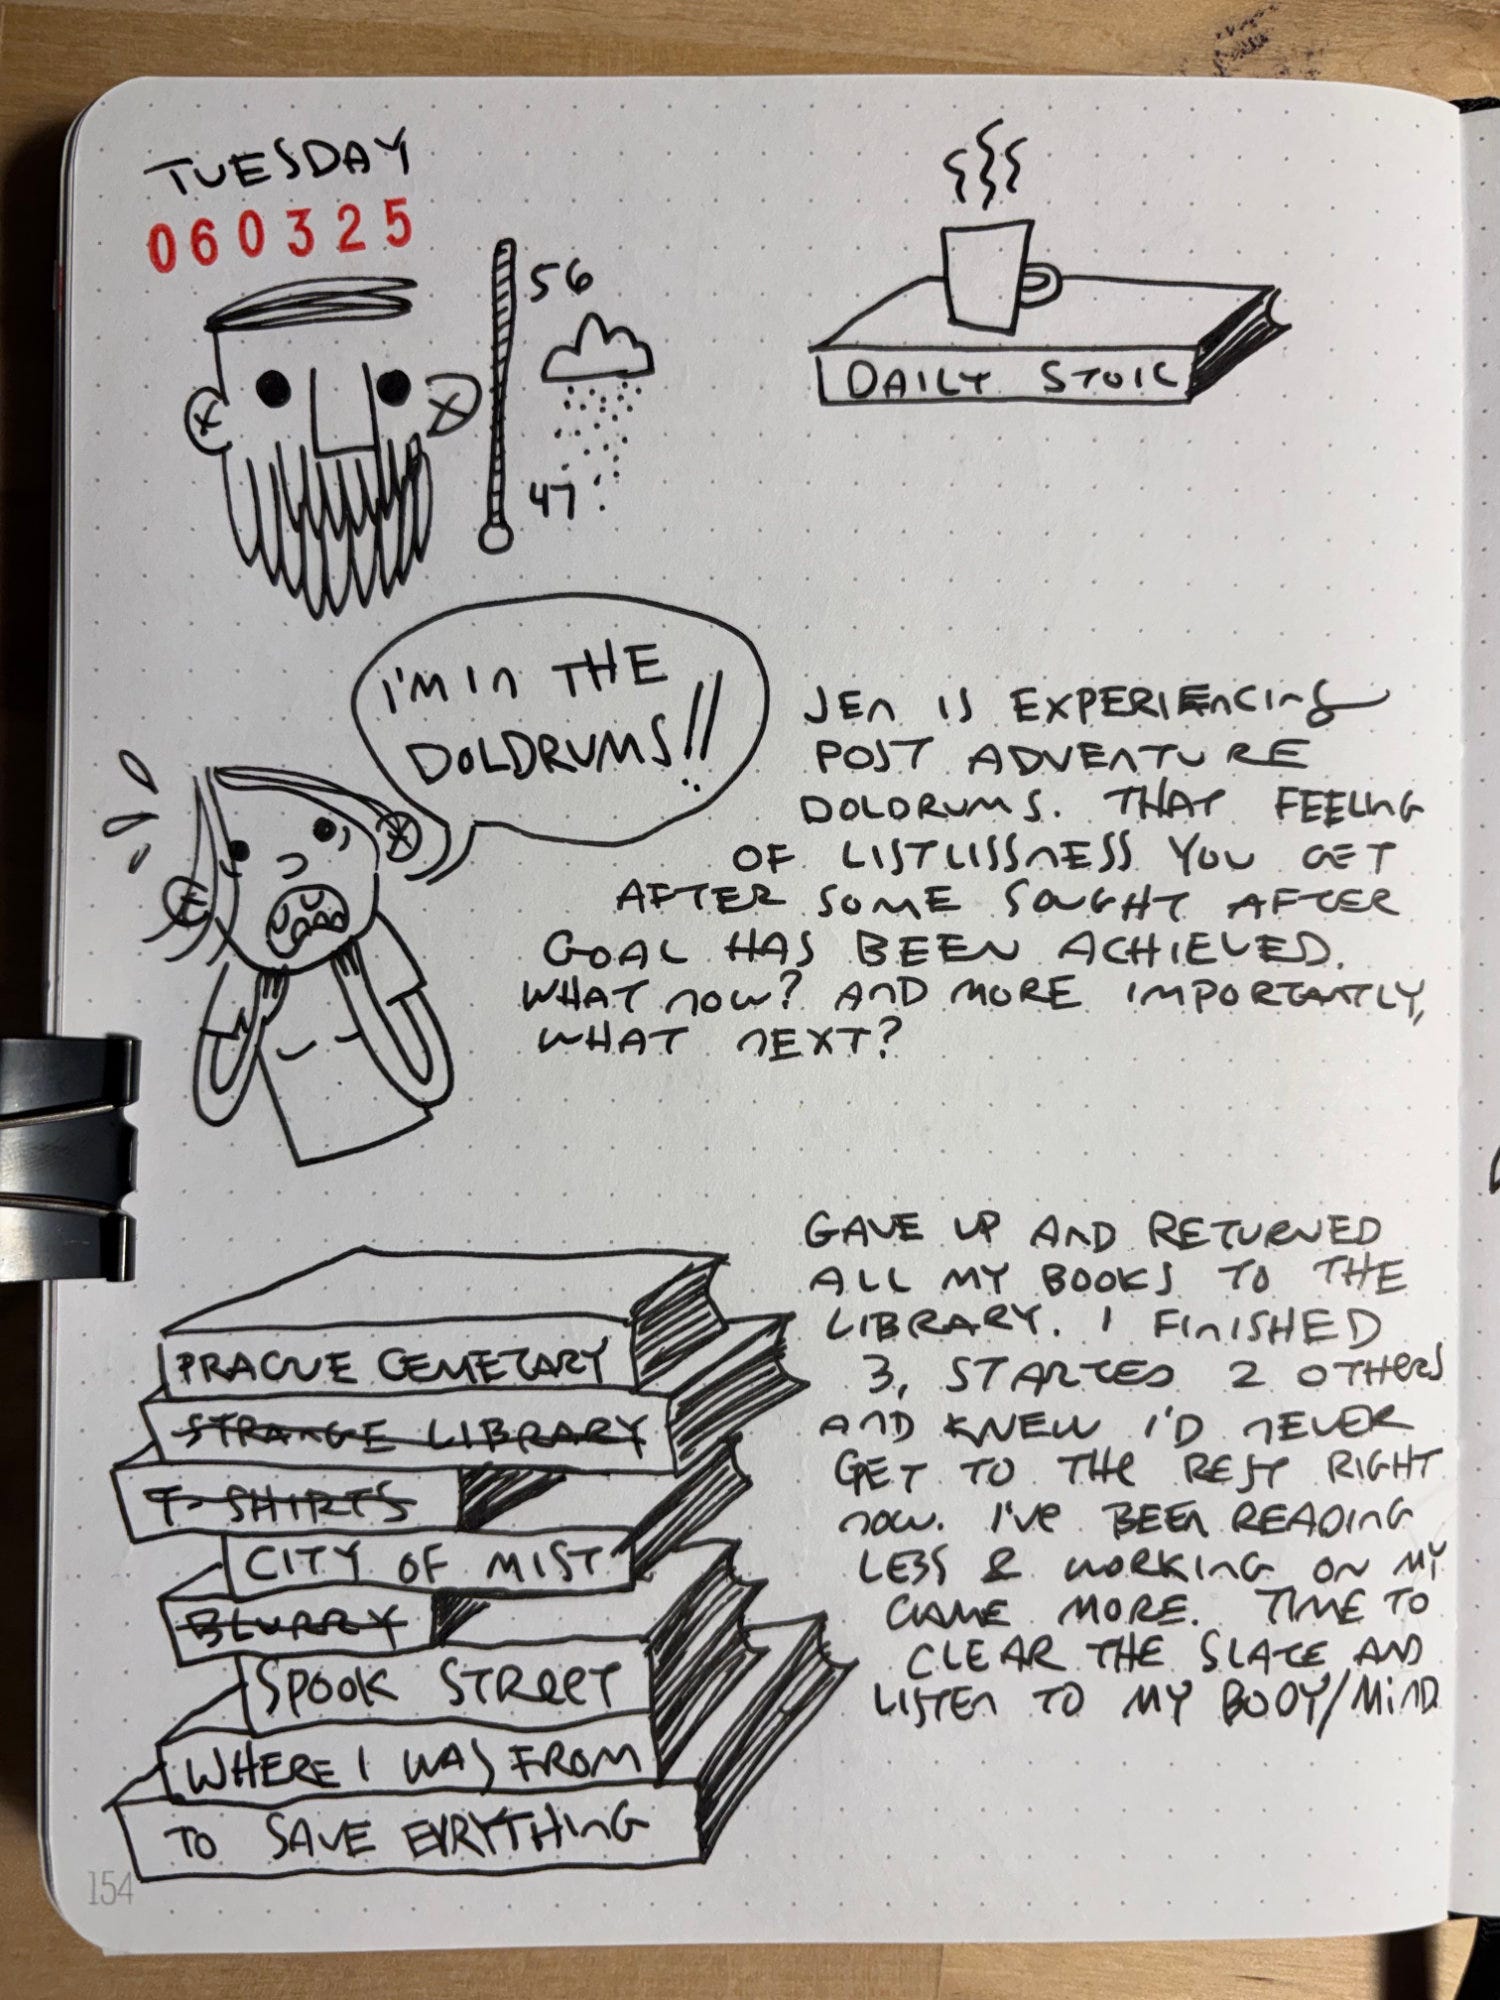 TUESDAY
060325
56
47
DAILY STOIC
I'M IN THE
DOLDRUMS!!
JEN IS EXPERIENCING
POST ADVENTURE
DOLDRUMS. THAT FEELING
OF LISTLISSNESS YOU GET
AFTER SOME SOUGHT AFTER
GOAL HAS BEEN ACHIEVED.
WHAT NOW? AND MORE IMPORTANTLY,
WHAT NEXT?
GAVE UP AND RETURNED
ALL MY BOOKS TO THE
LIBRARY. I FINISHED
3, STARTED 2 OTHERS
AND KNEW I'D NEVER
GET TO THE REST RIGHT
NOW. I'VE BEEN READING
LESS & WORKING ON MY
GAME MORE. TIME TO
CLEAR THE SLATE AND
LISTEN TO MY BODY/MIND
PRAGUE CEMETARY
STRANGE LIBRARY
T-SHIRTS
CITY OF MIST
BLURRY
SPOOK STREET
WHERE I WAS FROM
TO SAVE EVRYTHING
154